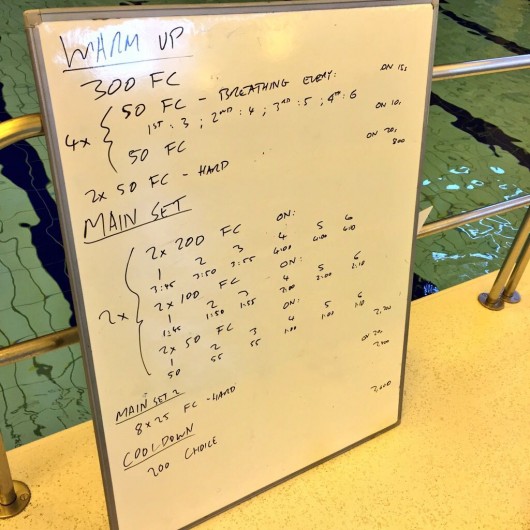 WARM UP
300 FC
4x { 50 FC - BREATHING EVERY: ON 15,
1ST: 3 ; 2ND: 4 ; 3RD: 5 ; 4TH: 6
50 FC ON 10,
2x 50 FC - HARD ON 20,
800
MAIN SET
2x { 2x 200 FC ON:
1 2 3 4 5 6
3:45 3:50 3:55 4:00 4:00 4:10
2x 100 FC ON:
1 2 3 4 5 6
1:45 1:50 1:55 2:00 2:00 2:10
2x 50 FC ON:
1 2 3 4 5 6
50 55 55 1:00 1:00 1:10
MAIN SET 2
8 x 25 FC - HARD ON 20,
COOLDOWN
200 CHOICE